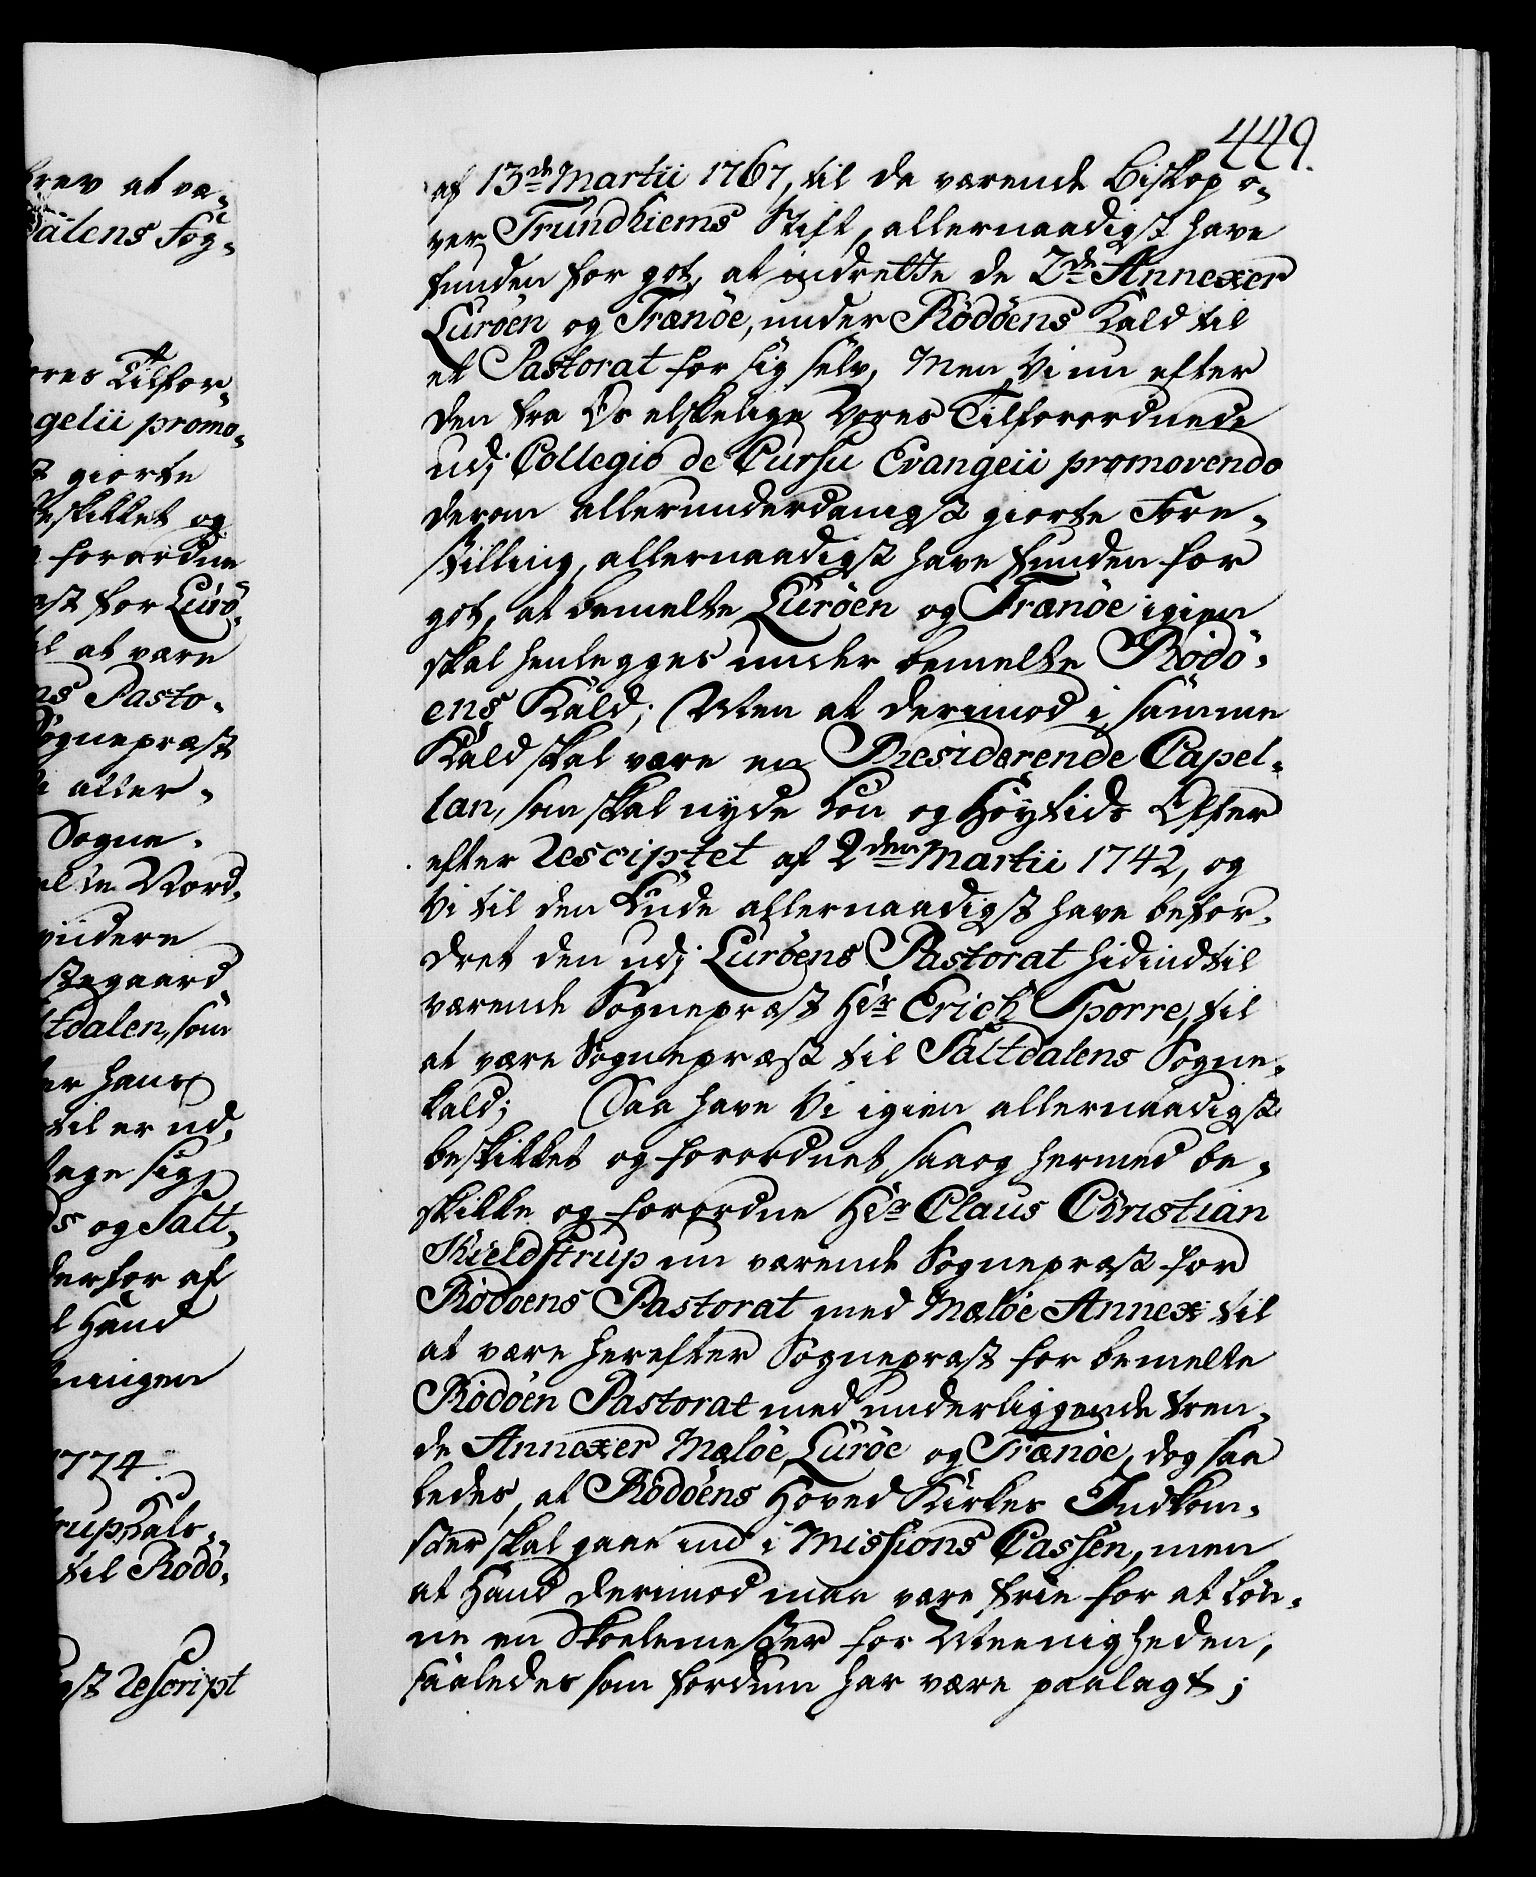 449.
af 13de Martii 1767, til de værende Biskop o-
ver Trundhiems Stift, allernaadigst have
funden for got, at indrette de 2de Annexer
Lurøen og Trænøe, under Rødøens Kald til
et Pastorat for sig selv, Men Vi nu efter
den fra Os elskelige Vores Tilforordnede
udj Collegio de Cursu Evangeii promovendo
derom allerunderdanigst giorte Fore-
stilling, allernaadigst have funden for
got, at bemelte Lurøen og Trænøe igien
skal henlegges under bemelte Rødø-
ens Kald; Men at derimod i samme
Kald skal være en Presiderende Capel-
lan, som skal nyde Løn og Høytids Offer
efter Resciptet af 2den Martii 1742, og
Vi til den Ende allernaadigst have befor-
dret den udj Lurøens Pastorat hidindtil
værende Sognepræst Hr Erich Sporre, til
at være Sognepræst til Saltdalens Sogne-
kald; Saa have Vi igien allernaadigst
beskikket og forordnet, saa og hermed be-
skikke og forordne Hr Claus Christian
Kieldstrup nu værende Sognepræst for
Rødøens Pastorat med Meløe Annex til
at være herefter Sognepræst for bemelte
Rødøen Pastorat med underliggende tren-
de Annexer Meløe, Lurøe og Trænøe, dog saa
ledes, at Rødøens Hoved Kirkes Indkom-
ster skal gaae ind i Missions Cassen, men
at Hand derimod maa være frie for at løn-
ne en Skolemester for Meenigheden,
saaledes som fordum har være paalagt;
rev at væ-
dalens Sog-
ores Tilfor-
gelii promo-
giorte
beskikket og
forordne
st for Lurø-
at være
ns Pasto-
Sognepræst
aller-
Sogne-
Nord-
indere
stegaard
ltdalen, som
er hans
til er ud-
tage sig
s og Salt-
derfor af
Hand
ningen
1774.
rup Kalds-
til Rødø-
st Rescript